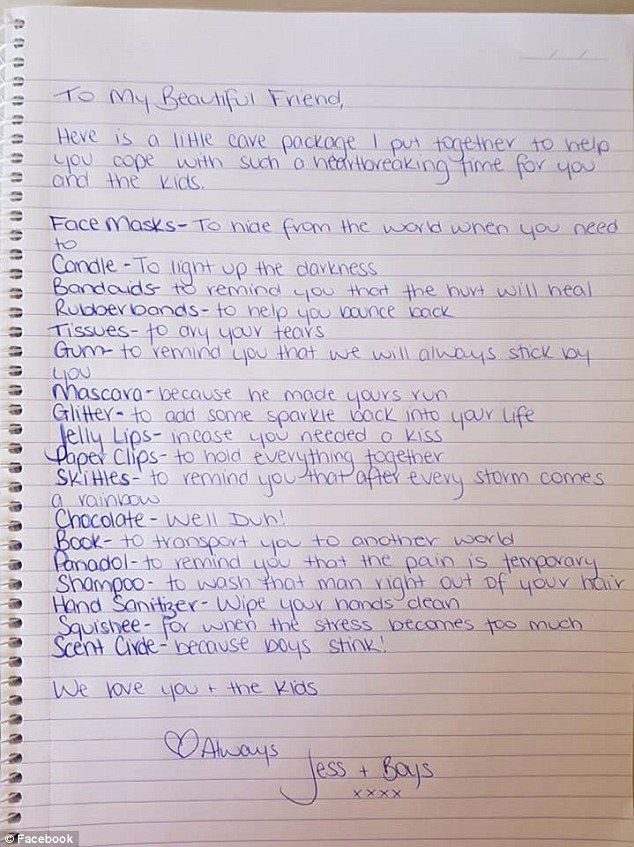 To My Beautiful Friend,
Here is a little care package I put together to help
you cope with such a heartbreaking time for you
and the kids.
Face Masks - To hide from the world when you need
to
Candle - To light up the darkness
Bandaids - to remind you that the hurt will heal
Rubberbands - to help you bounce back
Tissues - to dry your tears
Gum - to remind you that we will always stick by
you
Mascara - because he made yours run
Glitter - to add some sparkle back into your life
Jelly Lips - incase you needed a kiss
Paper Clips - to hold everything together
Skittles - to remind you that after every storm comes
a rainbow
Chocolate - Well Duh!
Book - to transport you to another world
Panadol - to remind you that the pain is temporary
Shampoo - to wash that man right out of your hair
Hand Sanitizer - Wipe your hands clean
Squishee - for when the stress becomes too much
Scent Circle - because boys stink!
We love you + the kids
♡ Always
Jess + Boys
xxxx
© Facebook